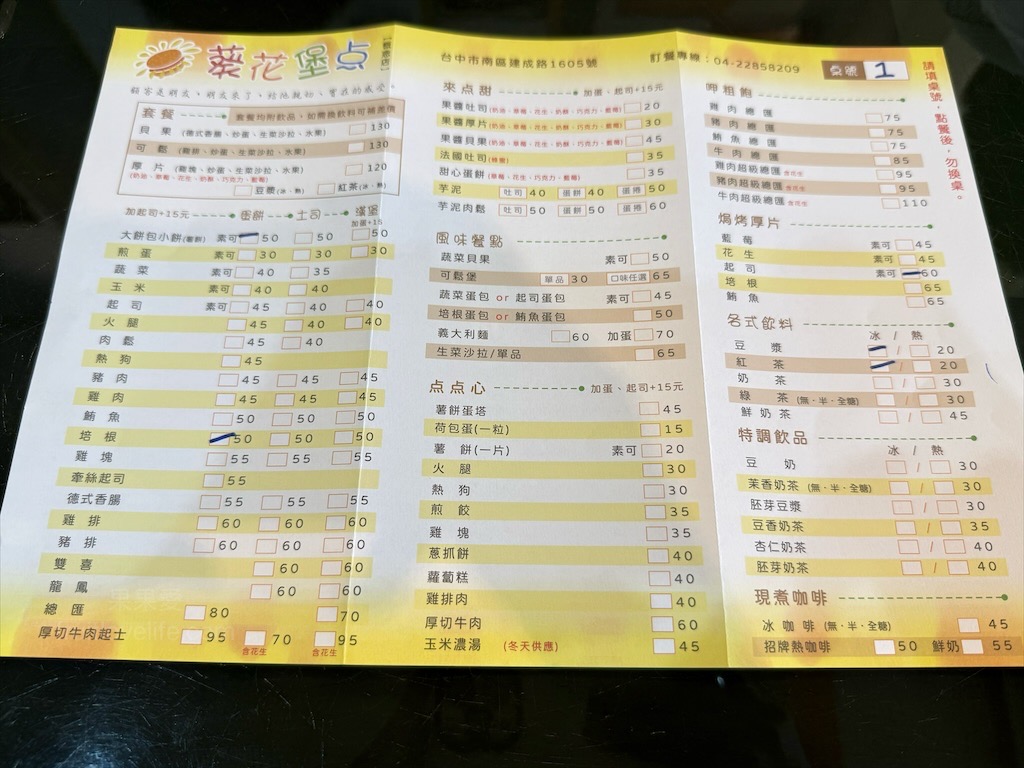 葵花堡点
【健康店】
台中市南區建成路1605號
訂餐專線：04-22858209
桌號 1
請填桌號，點餐後，勿換桌。
顧客是朋友、朋友來了、給他親切、實在的感受。
套餐 套餐均附飲品，如需換飲料可補差價
貝果 (德式香腸、炒蛋、生菜沙拉、水果) 130
可鬆 (雞排、炒蛋、生菜沙拉、水果) 130
厚片 (雞塊、炒蛋、生菜沙拉、水果) 120
(奶油、草莓、花生、奶酥、巧克力、藍莓)
豆漿(冰、熱) 紅茶(冰、熱)
加起司+15元 蛋餅 土司 漢堡
加蛋+15
大餅包小餅(薯餅) 素可 50 50 50
煎蛋 素可 30 30 30
蔬菜 素可 40 35
玉米 素可 40 40
起司 素可 45 40 40
火腿 45 40 40
肉鬆 45 40
熱狗 45
豬肉 45 45 45
雞肉 45 45 45
鮪魚 50 50 50
培根 50 50 50
雞塊 55 55 55
牽絲起司 55
德式香腸 55 55 55
雞排 60 60 60
豬排 60 60 60
雙喜 60 60
龍鳳 60 60
總匯 80 70
厚切牛肉起士 95 70 95
含花生 含花生
來点甜 加蛋、起司+15元
果醬吐司(奶油、草莓、花生、奶酥、巧克力、藍莓) 20
果醬厚片(奶油、草莓、花生、奶酥、巧克力、藍莓) 30
果醬貝果(奶油、草莓、花生、奶酥、巧克力、藍莓) 45
法國吐司(蜂蜜) 35
甜心蛋餅(草莓、花生、奶酥、巧克力、藍莓) 35
芋泥 吐司 40 蛋餅 40 蛋捲 50
芋泥肉鬆 吐司 50 蛋餅 50 蛋捲 60
風味餐點
蔬菜貝果 素可 50
可鬆堡 單品 30 口味任選 65
蔬菜蛋包 or 起司蛋包 素可 45
培根蛋包 or 鮪魚蛋包 50
義大利麵 60 加蛋 70
生菜沙拉/單品 65
点点心 加蛋、起司+15元
薯餅蛋塔 45
荷包蛋(一粒) 15
薯餅(一片) 素可 20
火腿 30
熱狗 30
煎餃 35
雞塊 35
蔥抓餅 40
蘿蔔糕 40
雞排肉 40
厚切牛肉 60
玉米濃湯 (冬天供應) 45
呷粗飽
雞肉總匯 75
豬肉總匯 75
鮪魚總匯 75
牛肉總匯 85
雞肉超級總匯 含花生 95
豬肉超級總匯 含花生 95
牛肉超級總匯 含花生 110
焗烤厚片
藍莓 素可 45
花生 素可 45
起司 素可 60
培根 65
鮪魚 65
各式飲料 冰 / 熱
豆漿 / 20
紅茶 / 20
奶茶 / 30
綠茶 (無、半、全糖) / 30
鮮奶茶 / 45
特調飲品 冰 / 熱
豆奶 / 30
茉香奶茶 (無、半、全糖) / 30
胚芽豆漿 / 30
豆香奶茶 / 35
杏仁奶茶 / 40
胚芽奶茶 / 40
現煮咖啡
冰咖啡 (無、半、全糖) 45
招牌熱咖啡 50 鮮奶 55